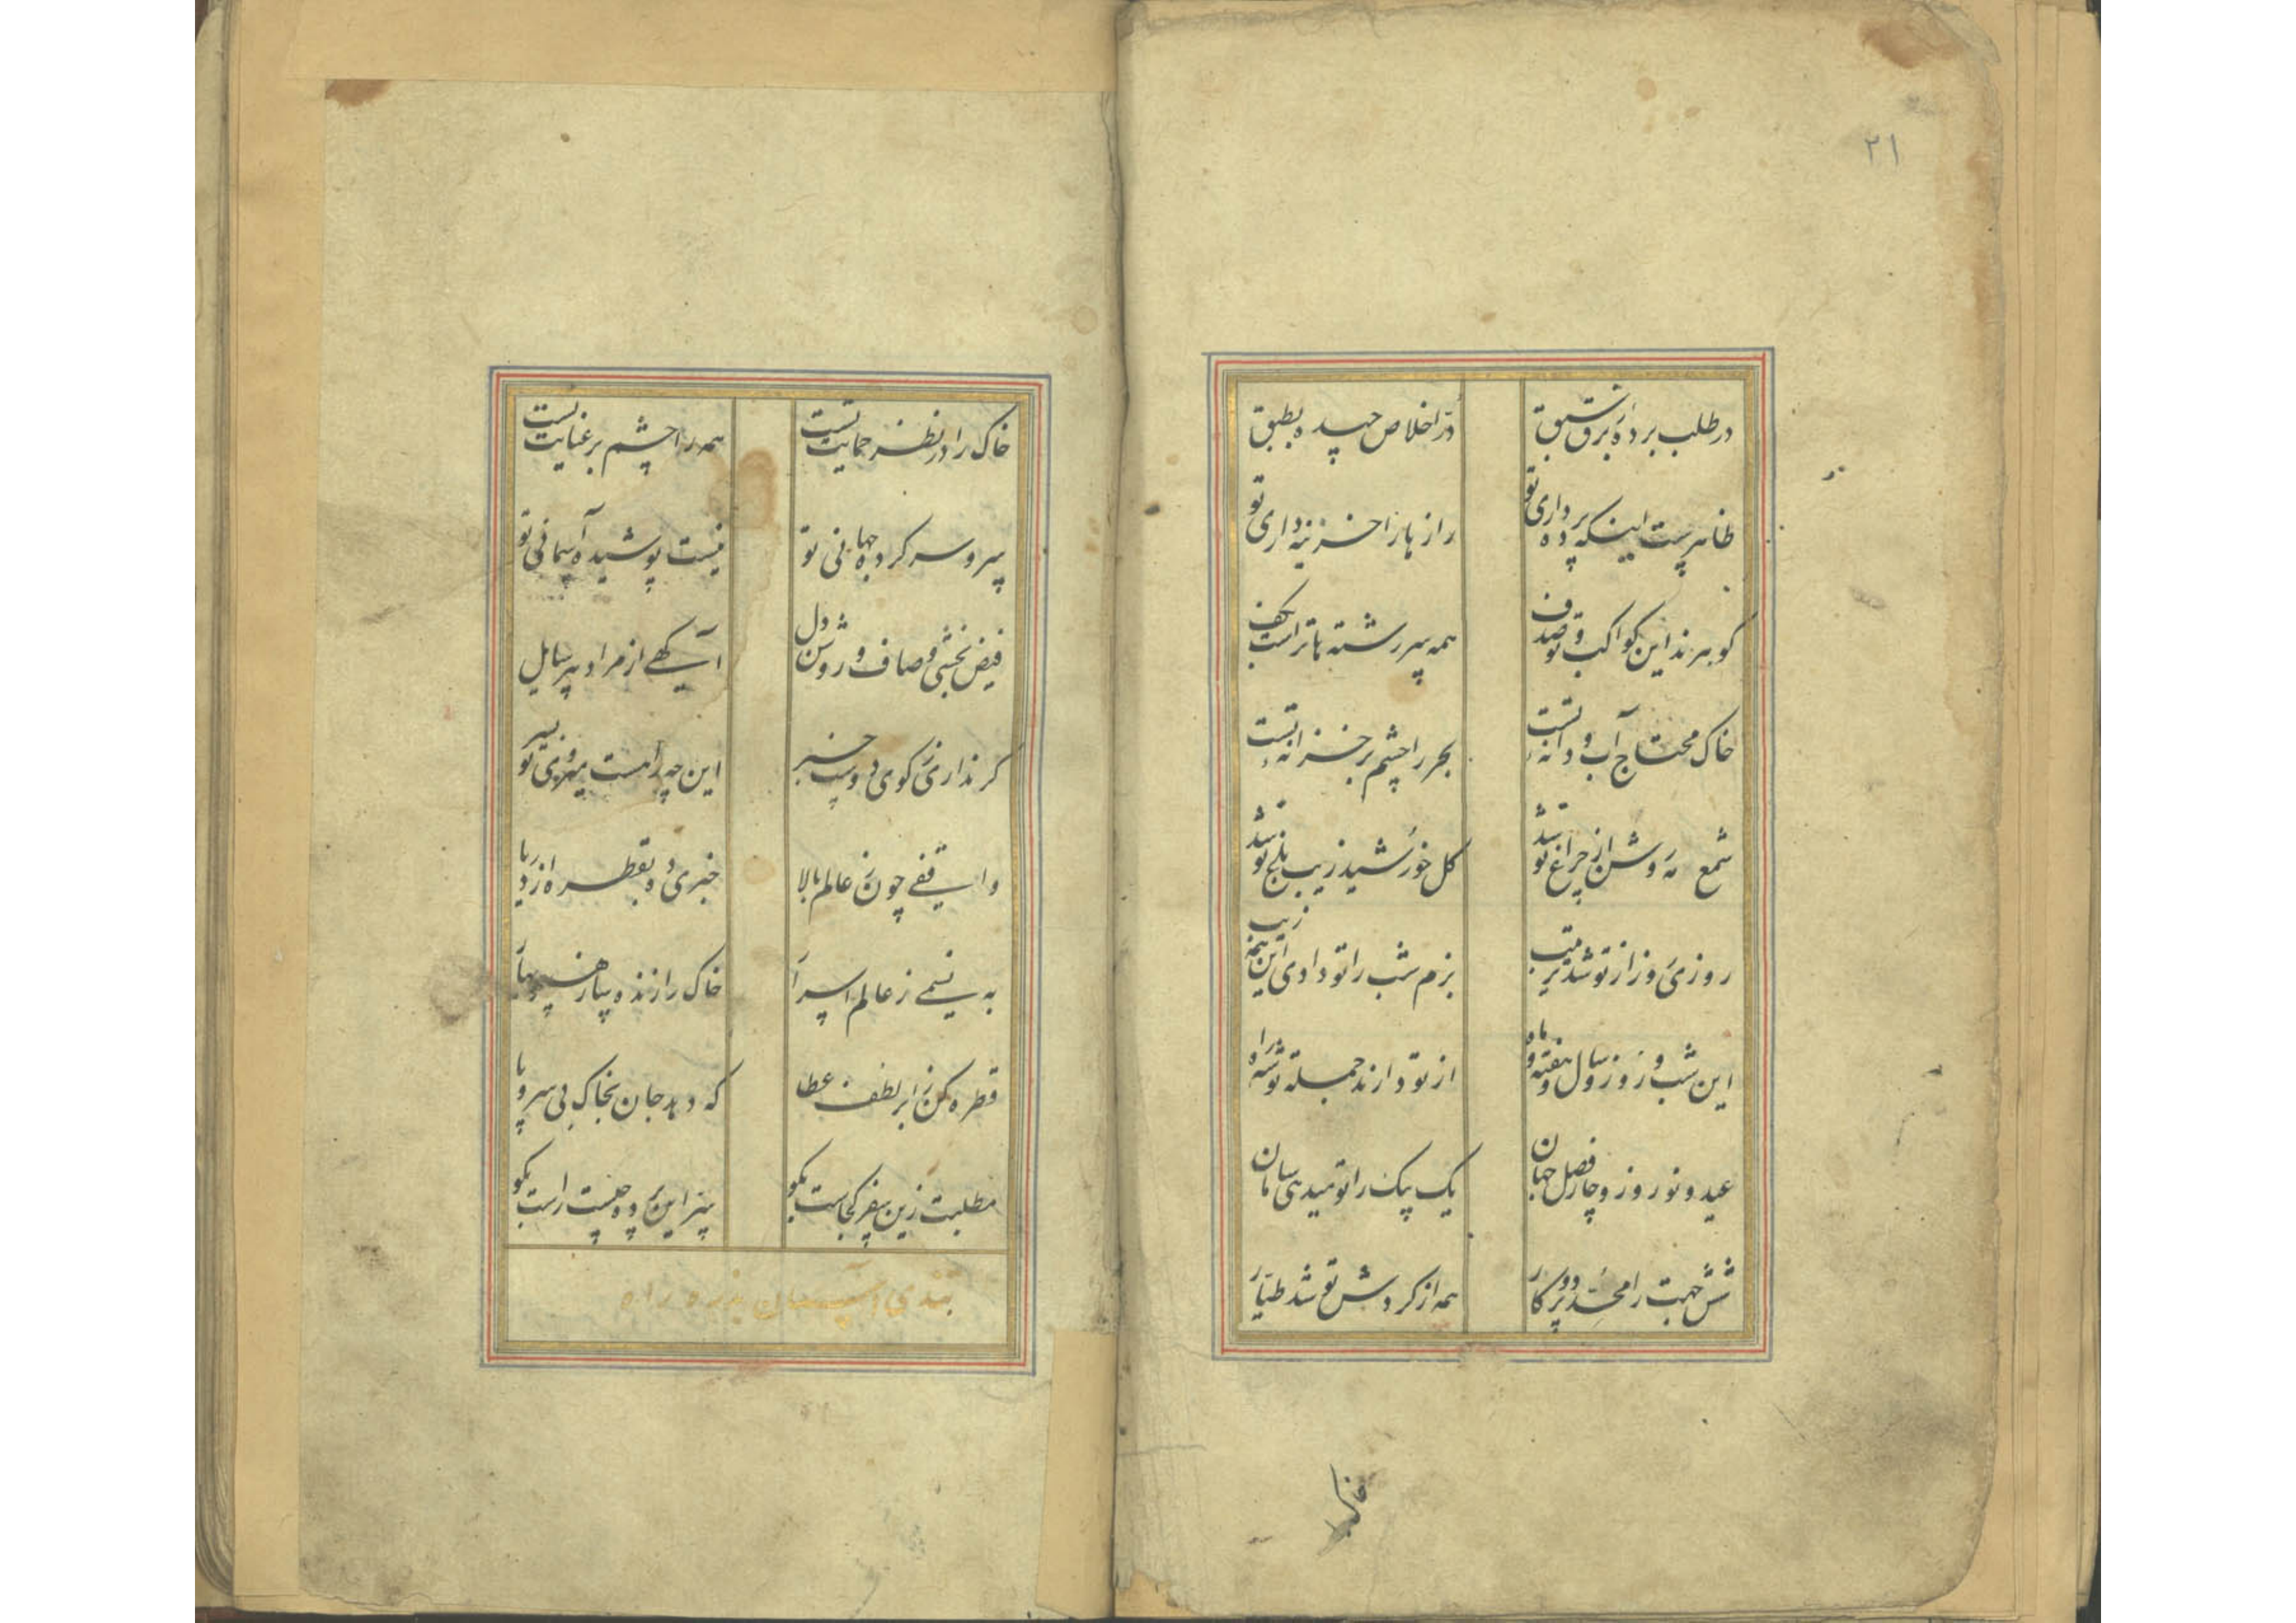 ۲۱
در طلب برده ز برق سبق
در اخلاص چیده بطبق
ظاهرست اینکه پرده داری تو
رازها را خزینه داری تو
گوهرند این کواکب و تو صدف
همه سر رشته‌ها تراست بکف
خاک محتاج آب و دانه تست
بحر را چشم بر خزانه تست
شمع مه روشن از چراغ تو شد
گل خورشید زیب باغ تو شد
روزی روز از تو شد ترتیب
بزم شب را تو دادی این همه زیب
این شب و روز و سال و هفته و ماه
از تو دارند جمله توشه راه
عید و نوروز و چار فصل جهان
یک بیک را تو میدهی سامان
شش جهت را محدد و پرکار
همه از گردش تو شد طیار
خاک
خاک را در نظر حمایت تست
همه را چشم بر عنایت تست
سر و سر کرده جهانی تو
نیست پوشیده آسمانی تو
فیض بخشی و صاف و روشن دل
آگهی از مراد هر سایل
گر نداری ز کوی دوست خبر
این چه راهست میروی تو بسر
واقفی چون ز عالم بالا
خبری ده بقطره از دریا
به نسیمی ز عالم اسرار
خاک را زنده ساز همچو بهار
قطره کن ز ابر لطف عطا
که دهد جان بخاک بی سر و پا
مطلبت زین سفر کجاست بگو
سر این پرده چیست راست بگو
تندی آسمان بذره راه